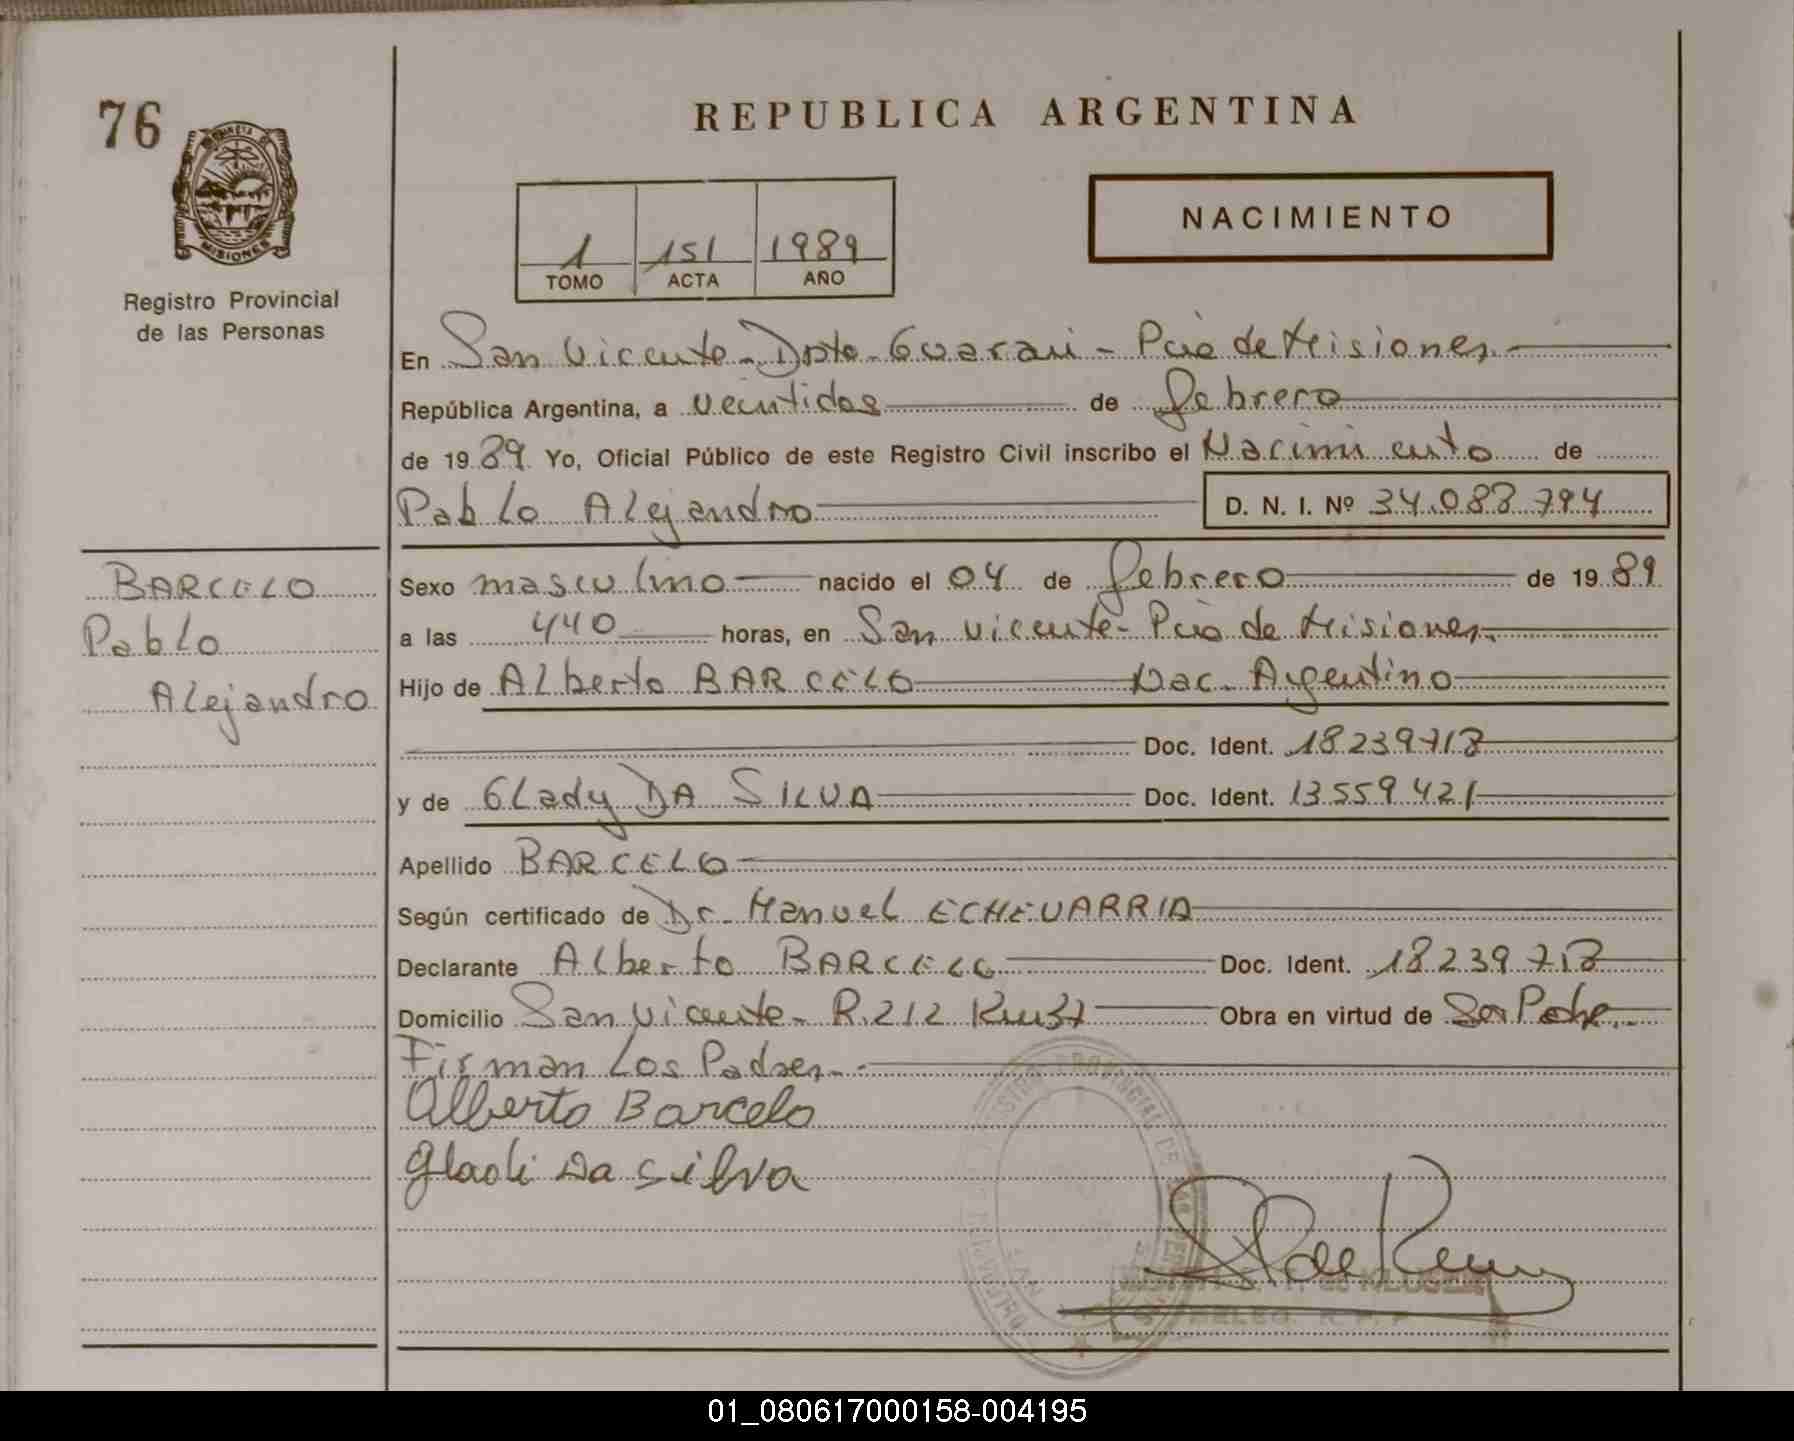 76
REPUBLICA ARGENTINA
MISIONES
Registro Provincial
de las Personas
1 151 1989
TOMO ACTA AÑO
NACIMIENTO
En San Vicente - Dpto. Guarani - Pcia de Misiones
República Argentina, a veintidos de febrero
de 1989 Yo, Oficial Público de este Registro Civil inscribo el Nacimiento de
Pablo Alejandro D. N. I. Nº 34.083.794
BARCELO
Pablo
Alejandro
Sexo masculino nacido el 04 de febrero de 1989
a las 440 horas, en San Vicente - Pcia de Misiones
Hijo de Alberto BARCELO Nac. Argentino
Doc. Ident. 18239713
y de Glady DA SILVA Doc. Ident. 13559421
Apellido BARCELO
Según certificado de Dr. Manuel ECHEVARRIA
Declarante Alberto BARCELO Doc. Ident. 18239713
Domicilio San Vicente - R.212 Km 37 Obra en virtud de Ser Padre
Firman Los Padres
Alberto Barcelo
Gladi Da Silva
01_080617000158-004195